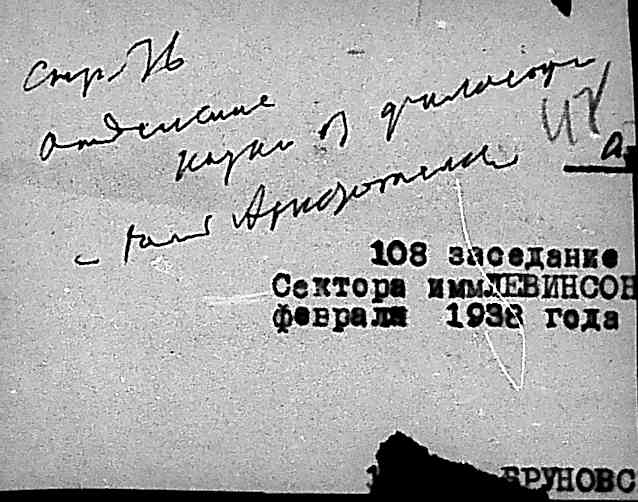 Стр.
отделение
науки от философии
Аристотеля
а
108 заседание
Сектора иммЛЕВИНСОН
февраля 1938 года
БРУНОВС